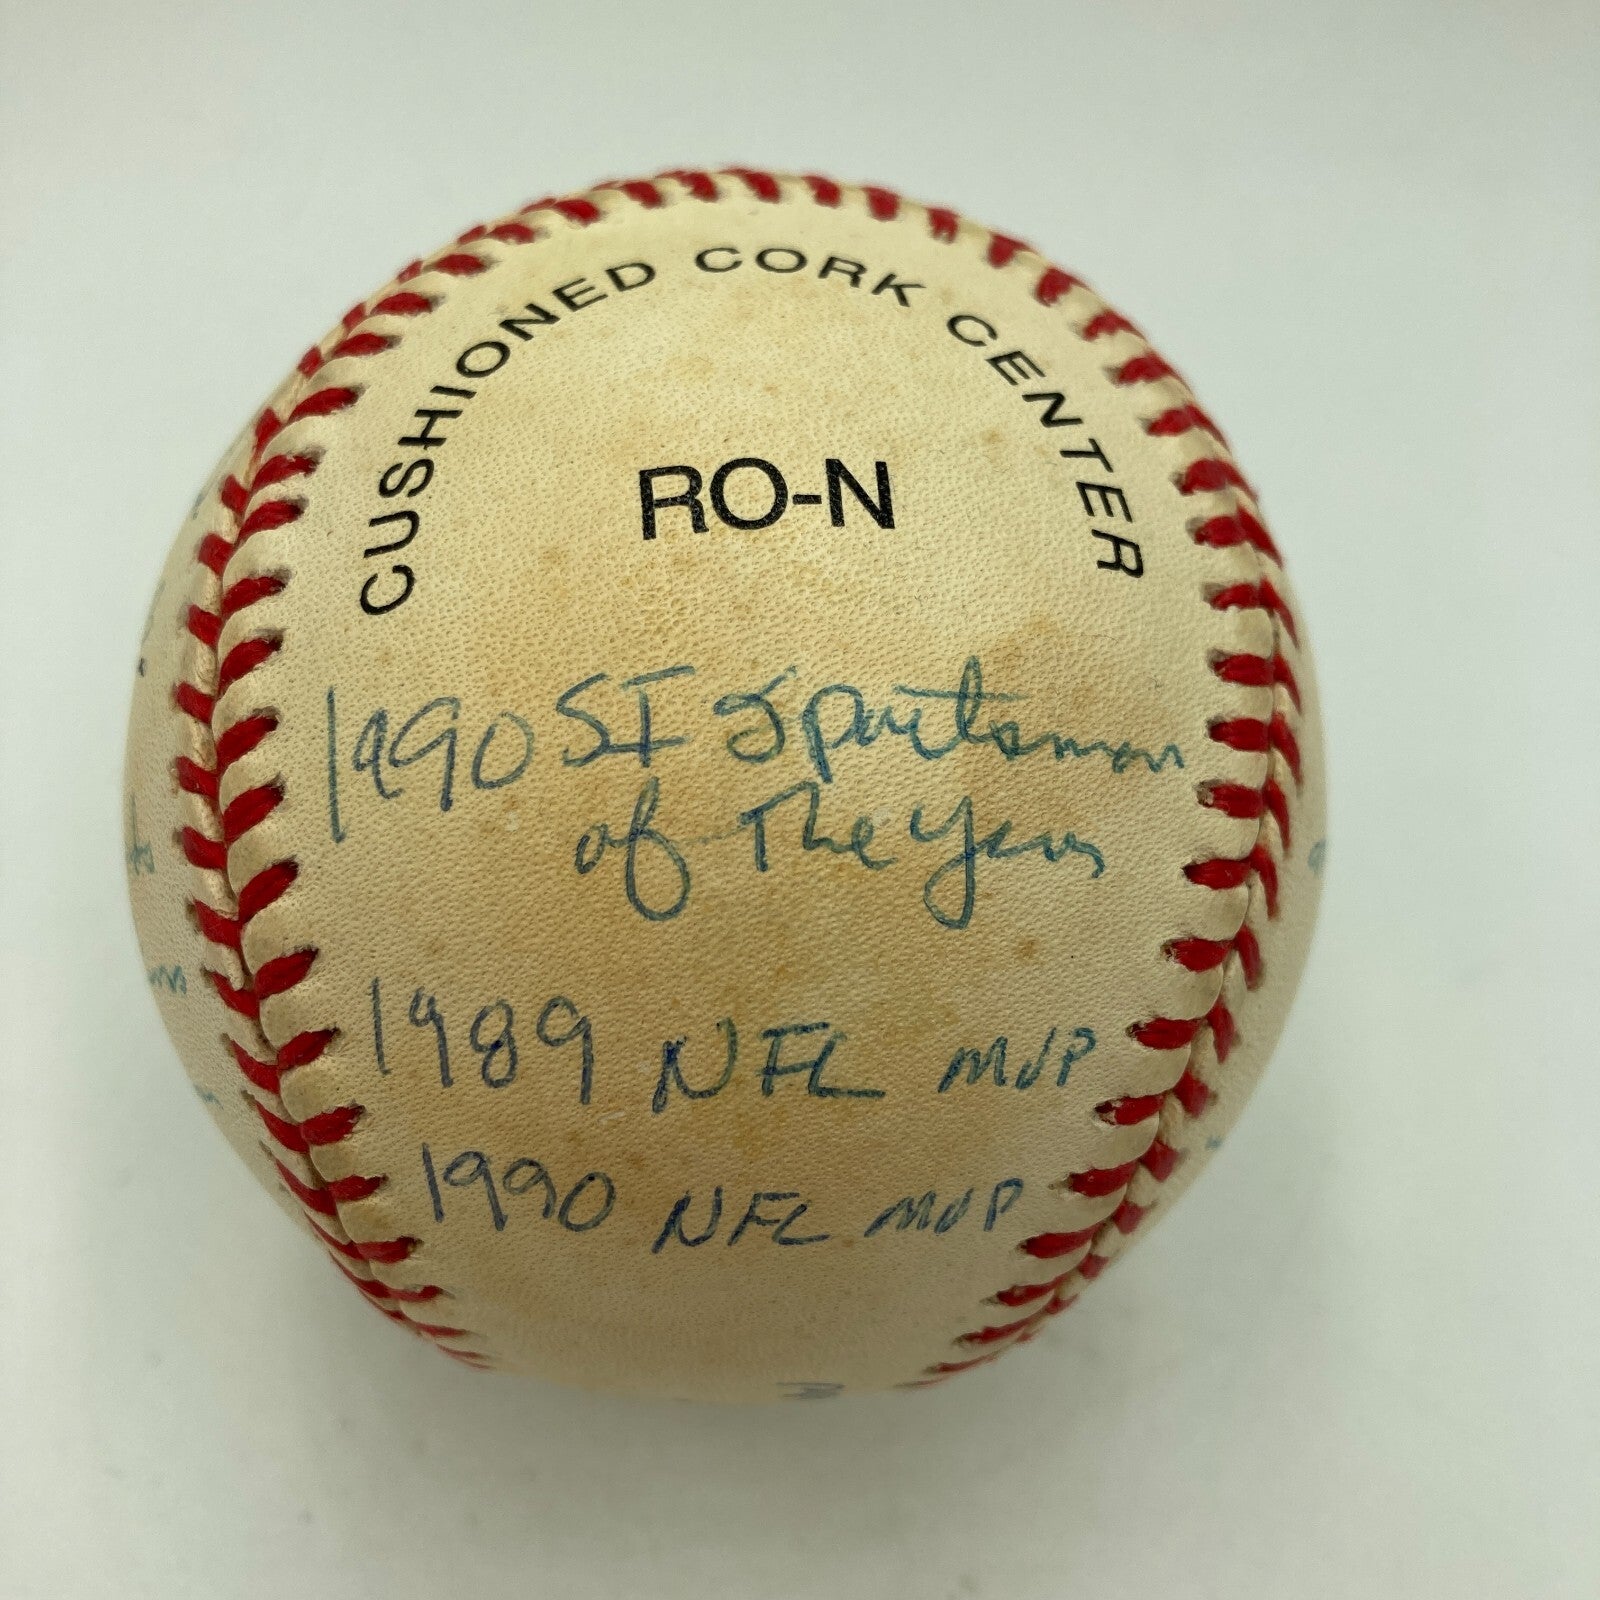 CUSHIONED CORK CENTER
RO-N
1990 SI Sportsman
of The Year
1989 NFL MVP
1990 NFL MVP